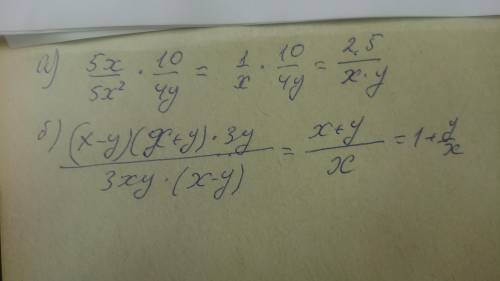 а) 5x/5x² · 10/4y = 1/x · 10/4y = 2,5/x·y
б) (x-y)(x+y)·3y/3xy·(x-y) = x+y/x = 1+y/x